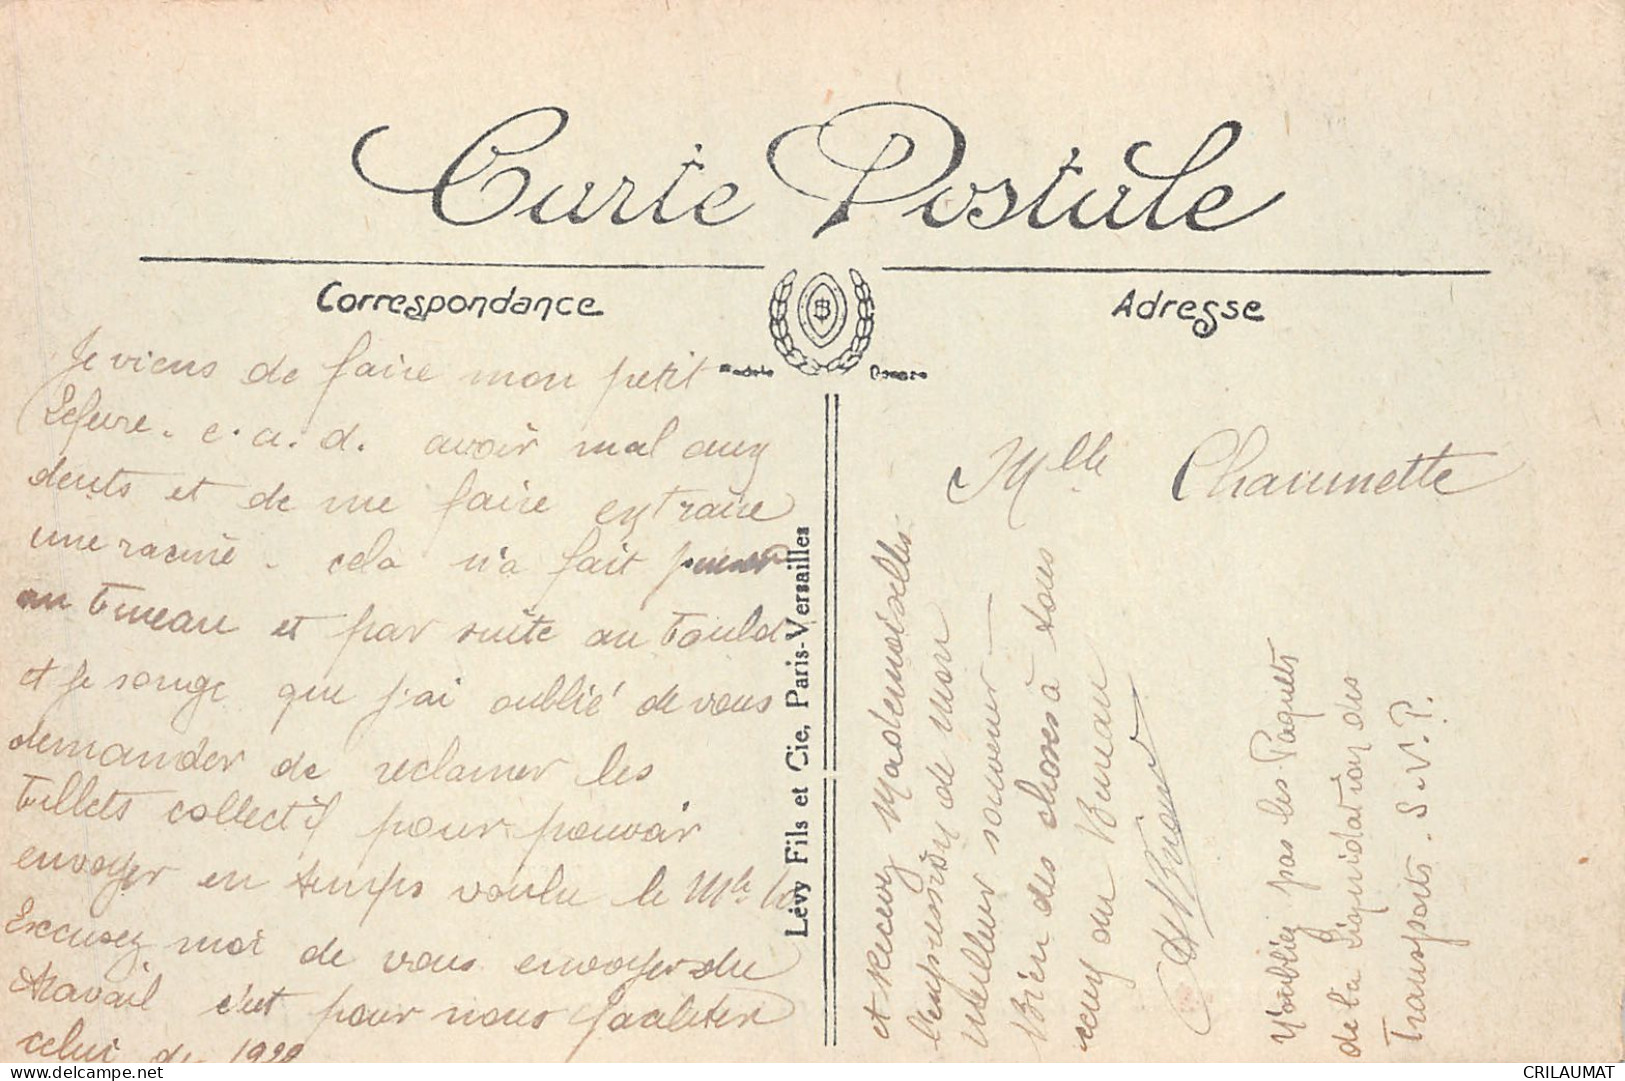 Carte Postale
Correspondance
Adresse
Je viens de faire mon petit
Lefevre. c. a. d. avoir mal aux
dents et de me faire extraire
une racine. cela n'a fait
et par suite au
et je songe que j'ai oublié de vous
demander de réclamer les
collectif pour pouvoir
envoyer en temps voulu le
Excusez moi de vous envoyer du
travail c'est pour nous faciliter
celui de
Lévy Fils et Cie, Paris-Versailles
Mlle Chaumette
et recevez Mademoiselle
l'expression de mon
meilleur souvenir
Bien des choses à tous
ceux du Bureau
N'oubliez pas les Paquets
de la liquidation des
Transports. S.V.P.
CRILAUMAT